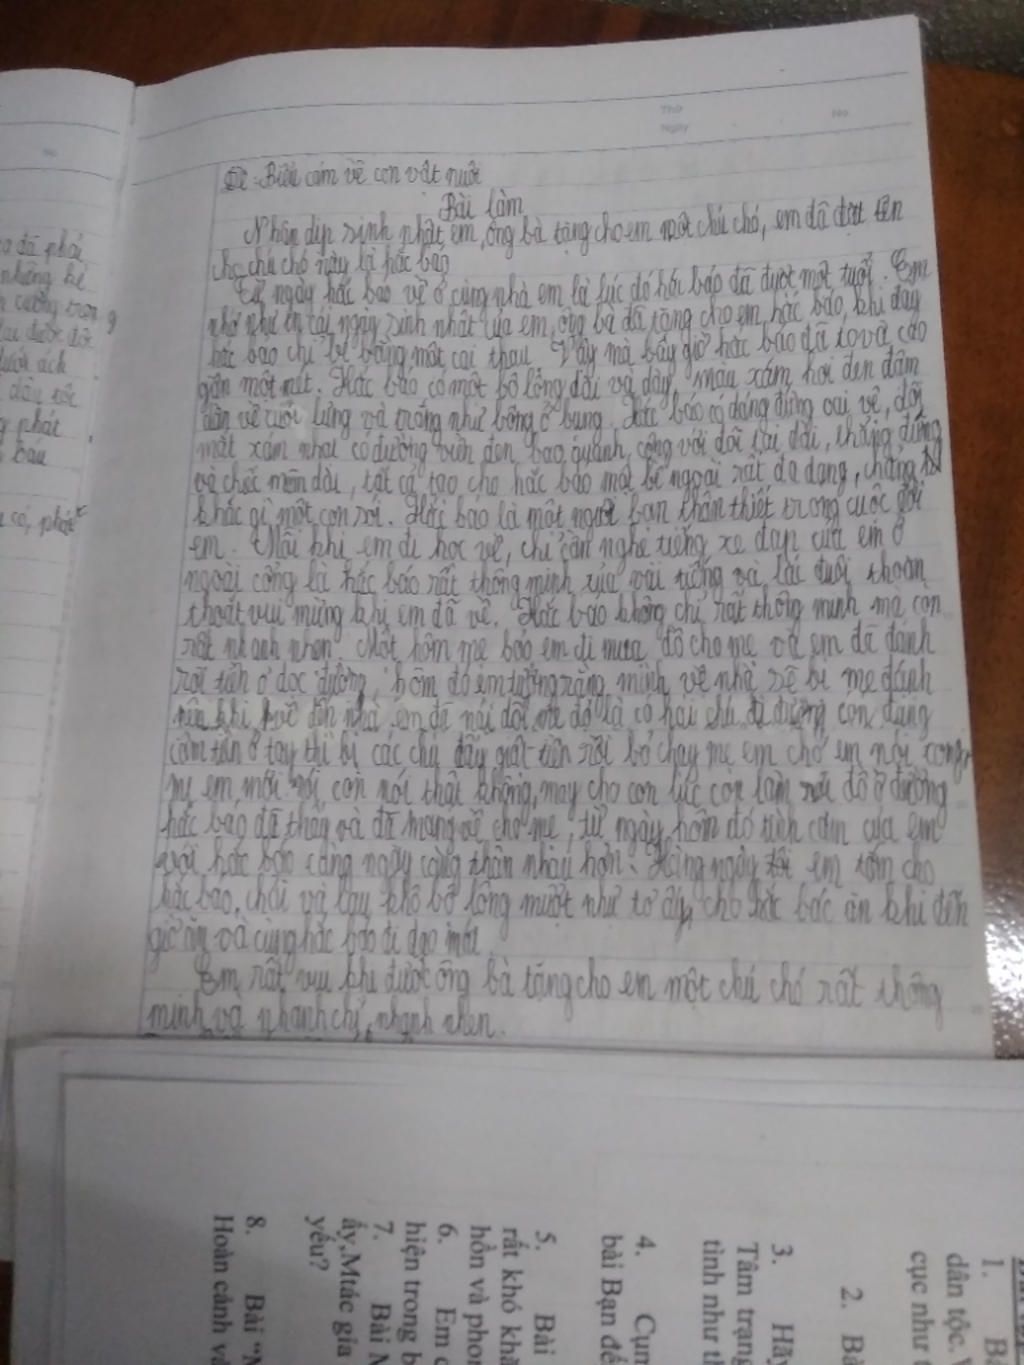 Thứ
Ngày
No
No
Đề: Biểu cảm về con vật nuôi
Bài làm
Nhân dịp sinh nhật em, ông bà tặng cho em một chú chó, em đã đặt tên
cho chú chó này là hắc báo
Từ ngày hắc báo về ở cùng nhà em là lúc đó hắc báo đã được một tuổi. Em
nhớ như in cái ngày sinh nhật của em, ông bà đã tặng cho em hắc báo, khi đấy
hắc báo chỉ bé bằng một cái thau. Vậy mà bây giờ hắc báo đã to và cao
gần một mét. Hắc báo có một bộ lông dài và dày, màu xám hơi đen đậm
dần về cuối lưng và trắng như bông ở bụng. Hắc báo có dáng đứng oai vệ, đôi
mắt xám nhạt có đường viền đen bao quanh, cộng với đôi tai dài, thẳng đứng
và chiếc mõm dài, tất cả tạo cho hắc báo một bề ngoài rất đa dạng, chẳng
khác gì một con sói. Hắc báo là một người bạn thân thiết trong cuộc đời
em. Mỗi khi em đi học về, chỉ cần nghe tiếng xe đạp của em ở
ngoài cổng là hắc báo rất thông minh sủa vài tiếng và lắc đuôi thoăn
thoắt vui mừng khi em đã về. Hắc báo không chỉ rất thông minh mà còn
rất nhanh nhẹn. Một hôm mẹ bảo em đi mua đồ cho mẹ và em đã đánh
rơi tiền ở dọc đường, hôm đó em tưởng rằng mình về nhà sẽ bị mẹ đánh
nên khi về đến nhà em đã nói dối mẹ đó là có hai chú đi đường con đang
cầm tiền ở tay thì bị các chú đấy giật tiền rồi bỏ chạy mẹ em chờ em nói xong
mẹ em mới nói, con nói thật không, may cho con lúc con làm rơi đồ ở đường
hắc báo đã thấy và đã mang về cho mẹ, từ ngày hôm đó tình cảm của em
với hắc báo càng ngày càng thân nhau hơn. Hàng ngày em tắm cho
hắc báo, chải và lau khô bộ lông mượt như tơ ấy, cho hắc bác ăn khi đến
giờ ăn và cùng hắc báo đi dạo mát
Em rất vui khi được ông bà tặng cho em một chú chó rất thông
minh và nhanh chí, nhanh nhẹn.
đã phải
những
trong
được
ách
phát
báu
có, phát
1.
dân tộc.
cục như
2.
3. Hãy
Tâm trạng
tình như
4. Cụm
bài Bạn đế
5. Bài
rất khó
hồn và
6. Em
hiện trong
7. Bài
ấy,Mtác giả
yếu?
8. Bài
Hoàn cảnh